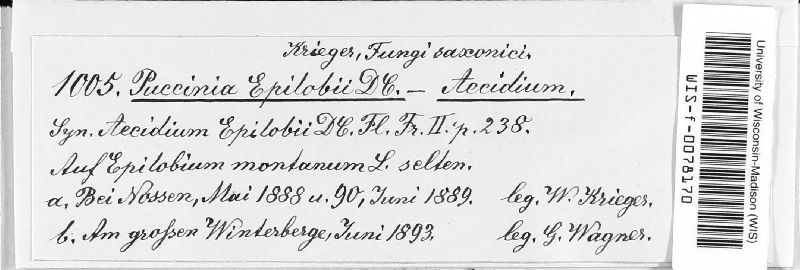 Krieger, Fungi saxonici.
1005. Puccinia Epilobii DC. — Aecidium.
Syn. Aecidium Epilobii DC. Fl. Fr. II. p. 238.
Auf Epilobium montanum L. selten.
a, Bei Nossen, Mai 1888 u. 90, Juni 1889. leg. W. Krieger.
b. Am grossen Winterberge, Juni 1893. leg. G. Wagner.
University of Wisconsin-Madison (WIS)
WIS-f-0078170